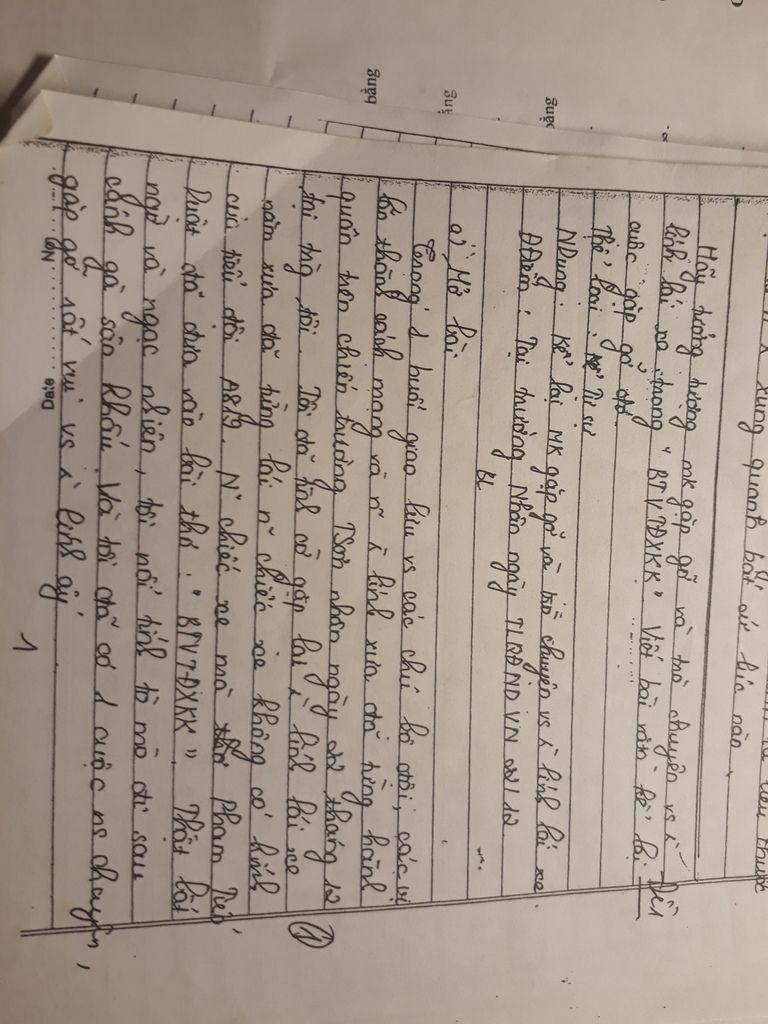 xung quanh bất cứ lúc nào.
Hãy tưởng tượng mk gặp gỡ và trò chuyện vs
lính lái xe trong "BTVTĐXKK" Viết bài văn kể lại
cuộc gặp gỡ đó
Thể loại: Tự sự
NDung: Kể lại mk gặp gỡ và trò chuyện vs lính lái xe
ĐĐiểm: Tại trường Nhân ngày TLQĐNDVN 22/12
BL
a) Mở bài
Trong 1 buổi giao lưu vs các chú bộ đội, các vị
lão thành cách mạng và lính xưa đã từng hành
quân trên chiến trường Tsơn nhân ngày 22 tháng 12
tại tg tôi. Tôi đã tình cờ gặp lại lính lái xe
năm xưa đã từng lái chiếc xe không có kính
của tiểu đội chiếc xe mà Phạm Tiến
Duật đã đưa vào bài thơ: "BTVTĐXKK". Thật bất
ngờ và ngạc nhiên, tôi nổi tính tò mò đi sau
cánh gà sân khấu. Và tôi đã có 1 cuộc ns chuyện,
gặp gỡ rất vui vs lính ấy
No Date
1
1
bằng
ằng
bằng